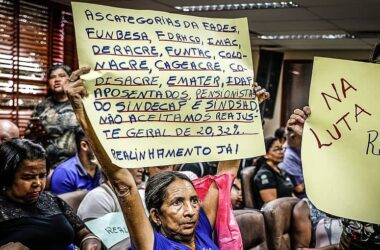 AS CATEGORIAS DA FADES,
FUNBESA, FDRHCD, IMAC,
DERACRE, FUNTAC, COLO-
NACRE, CAGEACRE, CO-
DISACRE, EMATER, IDAF
APOSENTADOS, PENSIONISTAS
DO SINDECAF E SINDSAD
NÃO ACEITAMOS REAJUS-
TE GERAL DE 20,32%.
REALINHAMENTO JÁ!
NA
LUTA